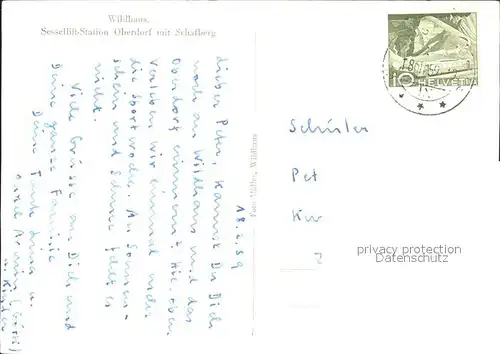 Wildhaus,
Sessellift-Station Oberdorf mit Schafberg
18.2.59
Lieber Peter, Kannst Du Dich
noch an Wildhaus und das
Oberdorf erinnern? Hier oben
verleben wir einmal mehr
die Sportwoche. An Sonnen-
schein und Schnee fehlt es
nicht.
Viele Grüsse an Dich und
Deine ganze Familie
Deine Tante Luisa u.
Onkel Armin
u. Kinder
Foto Müller, Wildhaus
10 HELVETIA
Schüler
Pet
Kur
privacy protection
Datenschutz